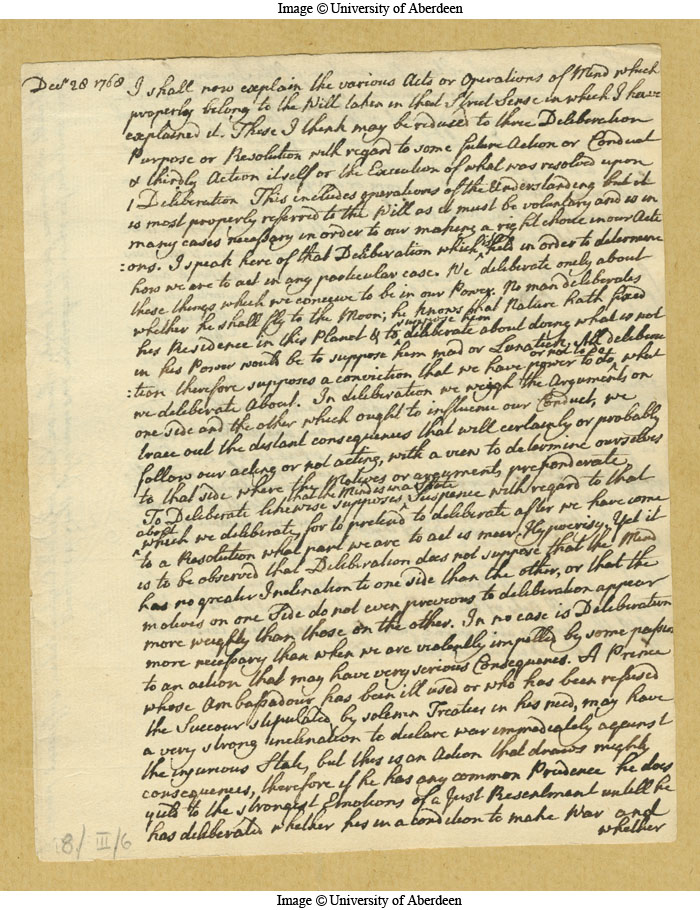 Image © University of Aberdeen
Decr 28 1768 I shall now explain the various Acts or Operations of Mind which
properly belong to the Will taken in that Strict Sense in which I have
explained it. These I think may be reduced to three Deliberation
Purpose or Resolution with regard to some future Action or Conduct
& thirdly Action itself or the Execution of what was resolved upon
1 Deliberation This includes operations of the Understanding but it
is most properly referred to the Will as it must be voluntary and is in
many cases necessary in order to our making a right choice in our Acti
:ons. I speak here of that Deliberation which is held in order to determine
how we are to act in any particular case. We deliberate onely about
these things which we conceive to be in our Power. No man deliberates
whether he shall fly to the Moon; he knows that Nature hath fixed
his Residence in this Planet & to suppose him deliberate about doing what is not
in his Power would be to suppose him mad or Lunatick. All delibera
:tion therefore supposes a conviction that we have power to do or not to do what
we deliberate About. In deliberation we weigh the Arguments on
one Side and the other which ought to influence our Conduct, we
trace out the distant consequences that will certainly or probably
follow our acting or not acting, with a view to determine ourselves
to that side where the Motives or arguments preponderate
To Deliberate likewise supposes that the Mind is in a State Suspence with regard to that
about which we deliberate, for to pretend to deliberate after we have come
to a Resolution what part we are to act is meer Hypocrisy. Yet it
is to be observed that Deliberation does not suppose that the Mind
has no greater Inclination to one side than the other, or that the
motives on one Side do not even previous to deliberation appear
more weighty than those on the other. In no case is Deliberation
more necessary than when we are violently impelled by some passion
to an action that may have very serious Consequences. A Prince
whose Ambassadour has been ill used or who has been refused
the Succour stipulated by solemn Treaties in his need, may have
a very strong inclination to declare war immediately against
the injurious State, but this is an Action that draws mighty
consequences, therefore if he has any common Prudence he does
yield to the strongest Emotions of a Just Resentment untill he
has deliberated whether hes in a condition to make War and
whether
8/III/6
Image © University of Aberdeen